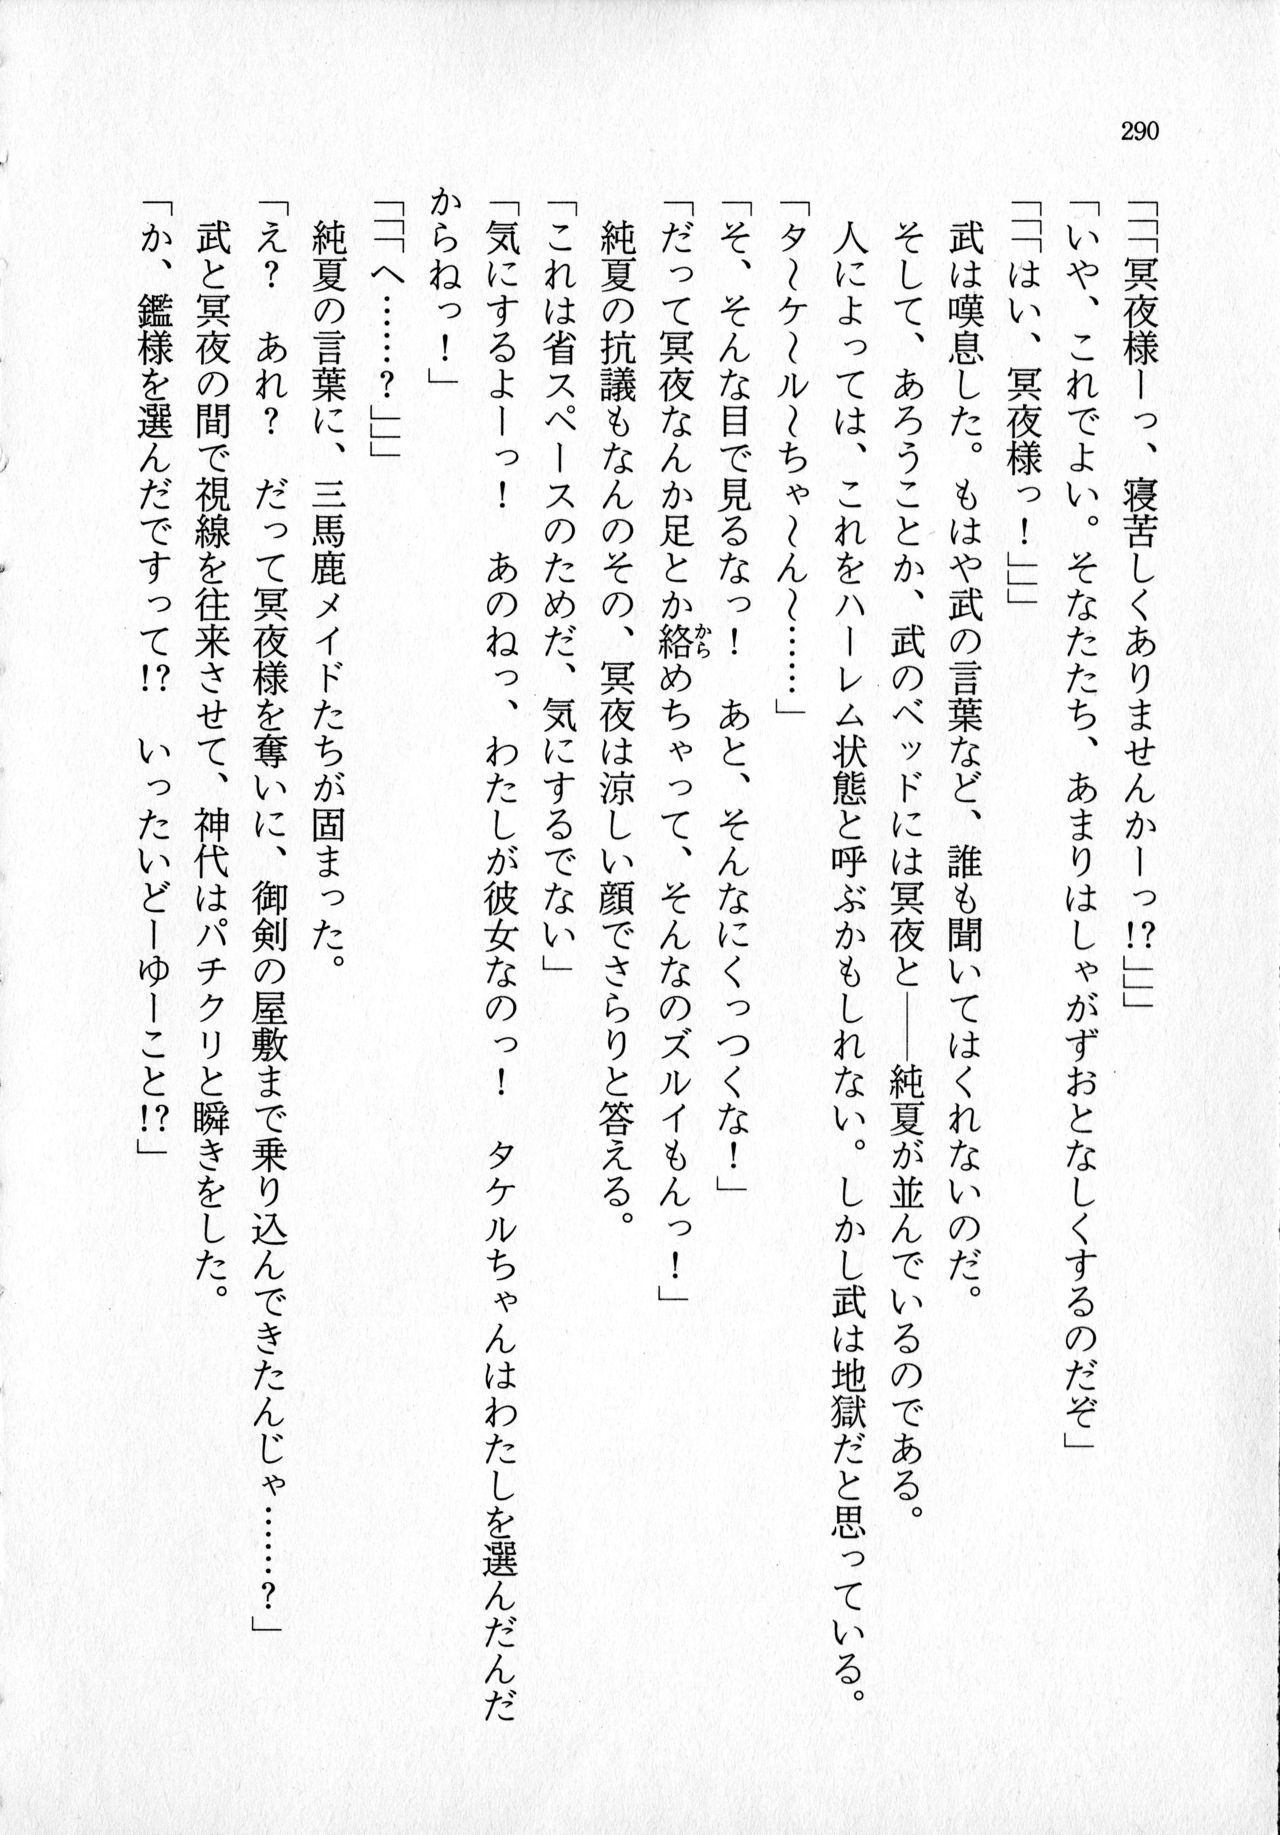 290
「「「冥夜様ーっ、寝苦しくありませんかーっ!?」」」
「いや、これでよい。そなたたち、あまりはしゃがずおとなしくするのだぞ」
「「「はい、冥夜様っ！」」」
武は嘆息した。もはや武の言葉など、誰も聞いてはくれないのだ。
そして、あろうことか、武のベッドには冥夜と――純夏が並んでいるのである。
人によっては、これをハーレム状態と呼ぶかもしれない。しかし武は地獄だと思っている。
「タ～ケ～ル～ちゃ～ん～……」
「そ、そんな目で見るなっ！　あと、そんなにくっつくな！」
「だって冥夜なんか足とか絡めちゃって、そんなのズルイもんっ！」
から
純夏の抗議もなんのその、冥夜は涼しい顔でさらりと答える。
「これは省スペースのためだ、気にするでない」
「気にするよーっ！　あのねっ、わたしが彼女なのっ！　タケルちゃんはわたしを選んだんだ
からねっ！」
「「「へ……？」」」
純夏の言葉に、三馬鹿メイドたちが固まった。
「え？　あれ？　だって冥夜様を奪いに、御剣の屋敷まで乗り込んできたんじゃ……？」
武と冥夜の間で視線を往来させて、神代はパチクリと瞬きをした。
「か、鑑様を選んだですって!?　いったいどーゆーこと!?」